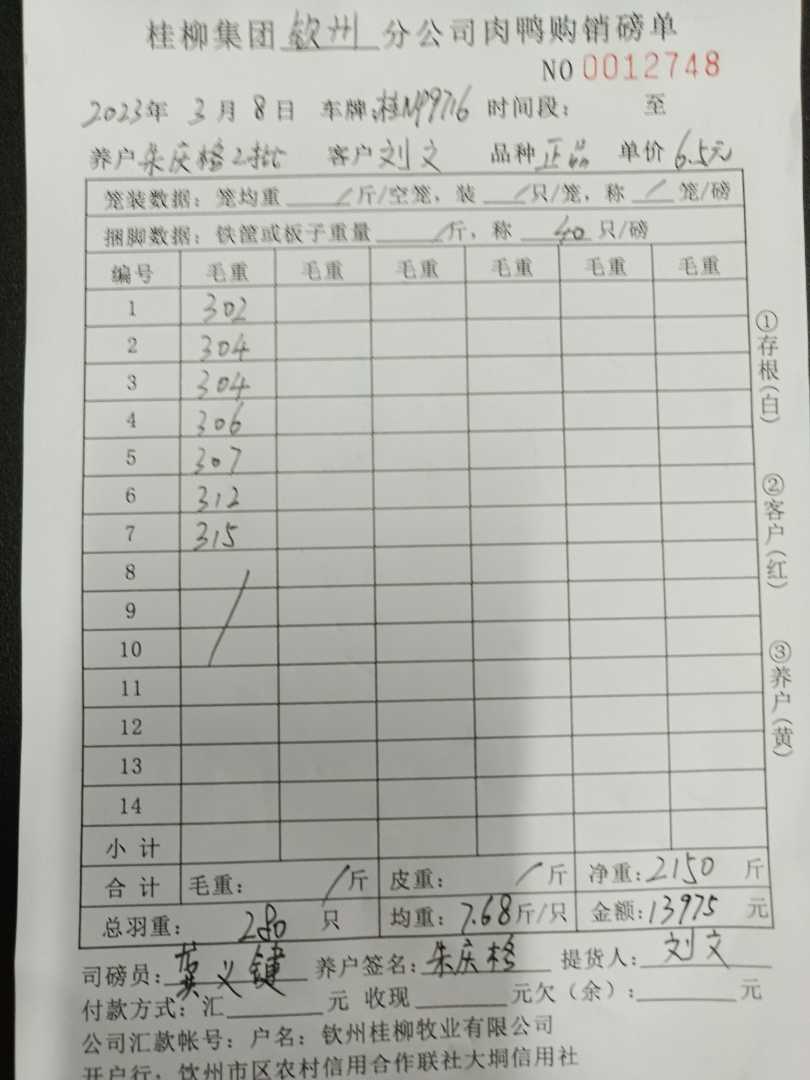 桂柳集团钦州分公司肉鸭购销磅单
NO 0012748
2023年 3月 8日 车牌:桂N99716 时间段: 至
养户 朱庆格2批 客户 刘文 品种 正品 单价 6.5元
笼装数据: 笼均重 / 斤/空笼, 装 / 只/笼, 称 / 笼/磅
捆脚数据: 铁筐或板子重量 / 斤, 称 40 只/磅
编号 毛重 毛重 毛重 毛重 毛重 毛重
1 302
2 304
3 304
4 306
5 307
6 312
7 315
8
9
10
11
12
13
14
小计
合计 毛重: / 斤 皮重: / 斤 净重: 2150 斤
总羽重: 280 只 均重: 7.68 斤/只 金额: 13975 元
司磅员: 莫义键 养户签名: 朱庆格 提货人: 刘文
付款方式: 汇 元 收现 元欠(余): 元
公司汇款帐号: 户名: 钦州桂柳牧业有限公司
开户行: 钦州市区农村信用合作联社大垌信用社
①存根(白)
②客户(红)
③养户(黄)